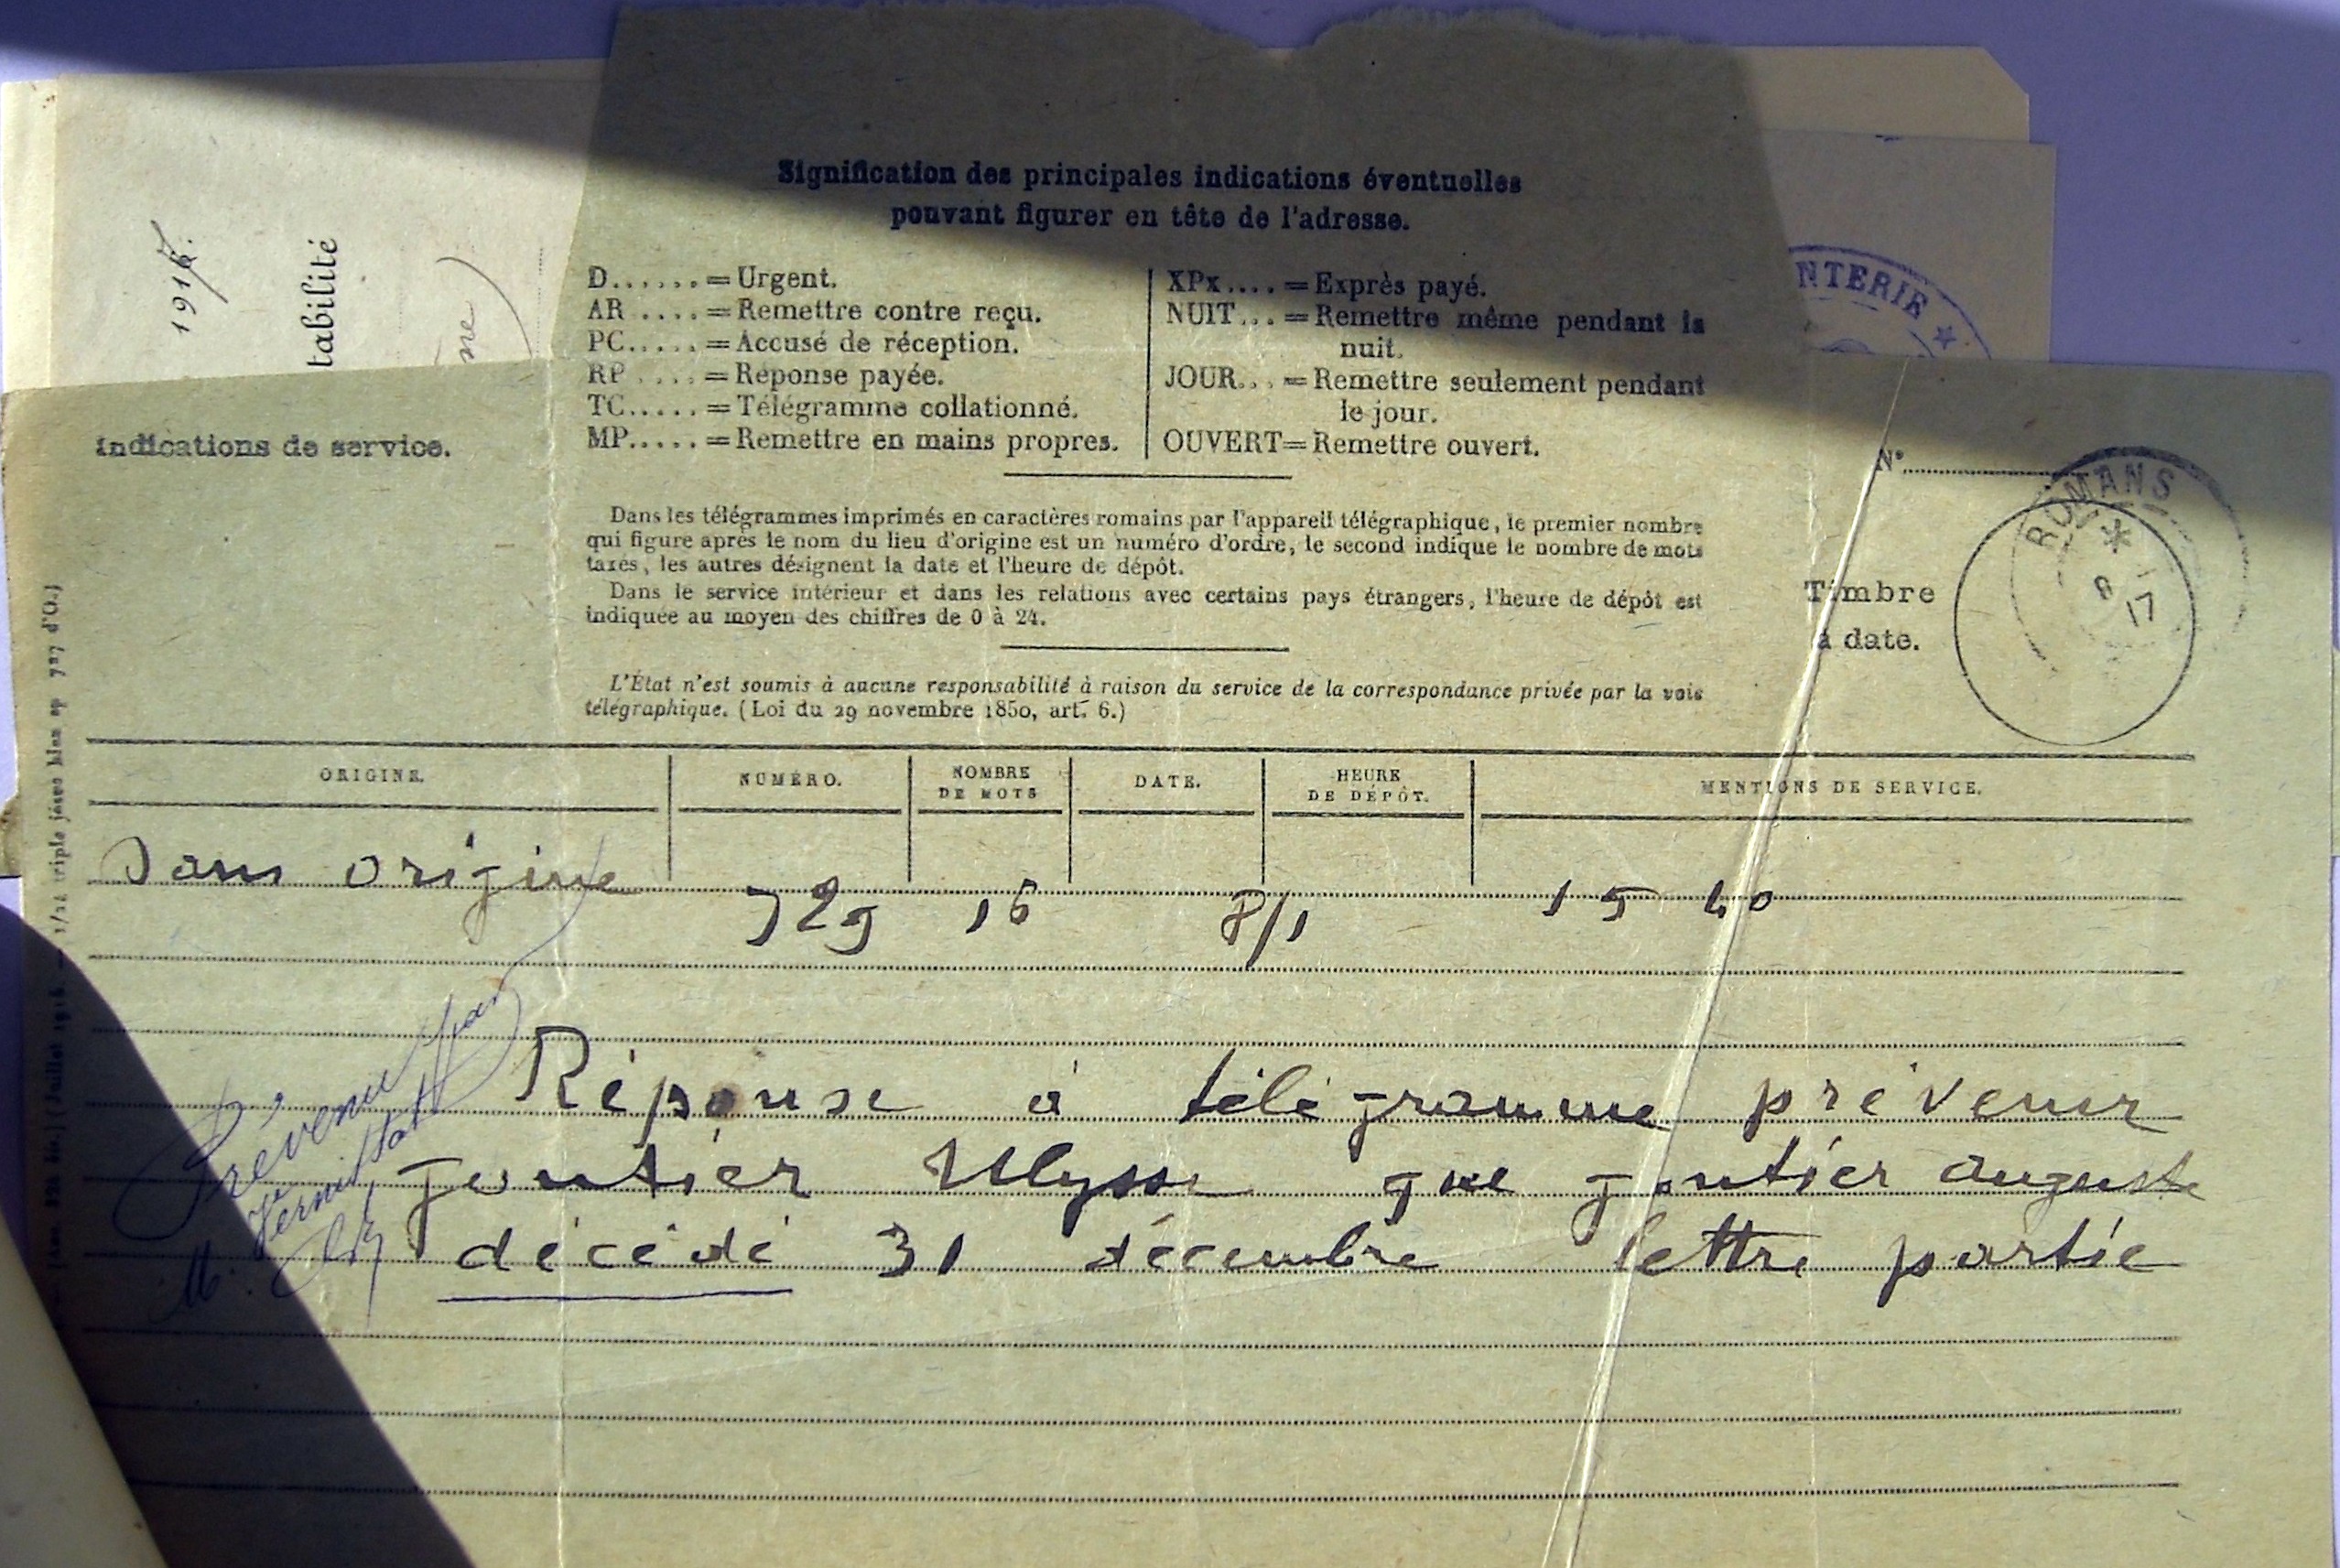 Signification des principales indications éventuelles
pouvant figurer en tête de l'adresse.
D...... = Urgent.
AR .... = Remettre contre reçu.
PC..... = Accusé de réception.
RP .... = Réponse payée.
TC..... = Télégramme collationné.
MP..... = Remettre en mains propres.
XPx.... = Exprès payé.
NUIT... = Remettre même pendant la
nuit.
JOUR... = Remettre seulement pendant
le jour.
OUVERT = Remettre ouvert.
191
tabilité
ne)
NTERIE ★
Indications de service.
N°
ROMANS
*
8
17
Timbre
à date.
Dans les télégrammes imprimés en caractères romains par l'appareil télégraphique, le premier nombre
qui figure après le nom du lieu d'origine est un numéro d'ordre, le second indique le nombre de mots
taxés, les autres désignent la date et l'heure de dépôt.
Dans le service intérieur et dans les relations avec certains pays étrangers, l'heure de dépôt est
indiquée au moyen des chiffres de 0 à 24.
L'État n'est soumis à aucune responsabilité à raison du service de la correspondance privée par la voie
télégraphique. (Loi du 29 novembre 1850, art. 6.)
ORIGINE.
NUMÉRO.
NOMBRE
DE MOTS
DATE.
HEURE
DE DÉPÔT.
MENTIONS DE SERVICE.
Sans origine
729 16 8/1 15 40
Réponse à télégramme prévenir
gontier Ulysse que gontier auguste
décédé 31 décembre lettre partie
Prévenu
M.